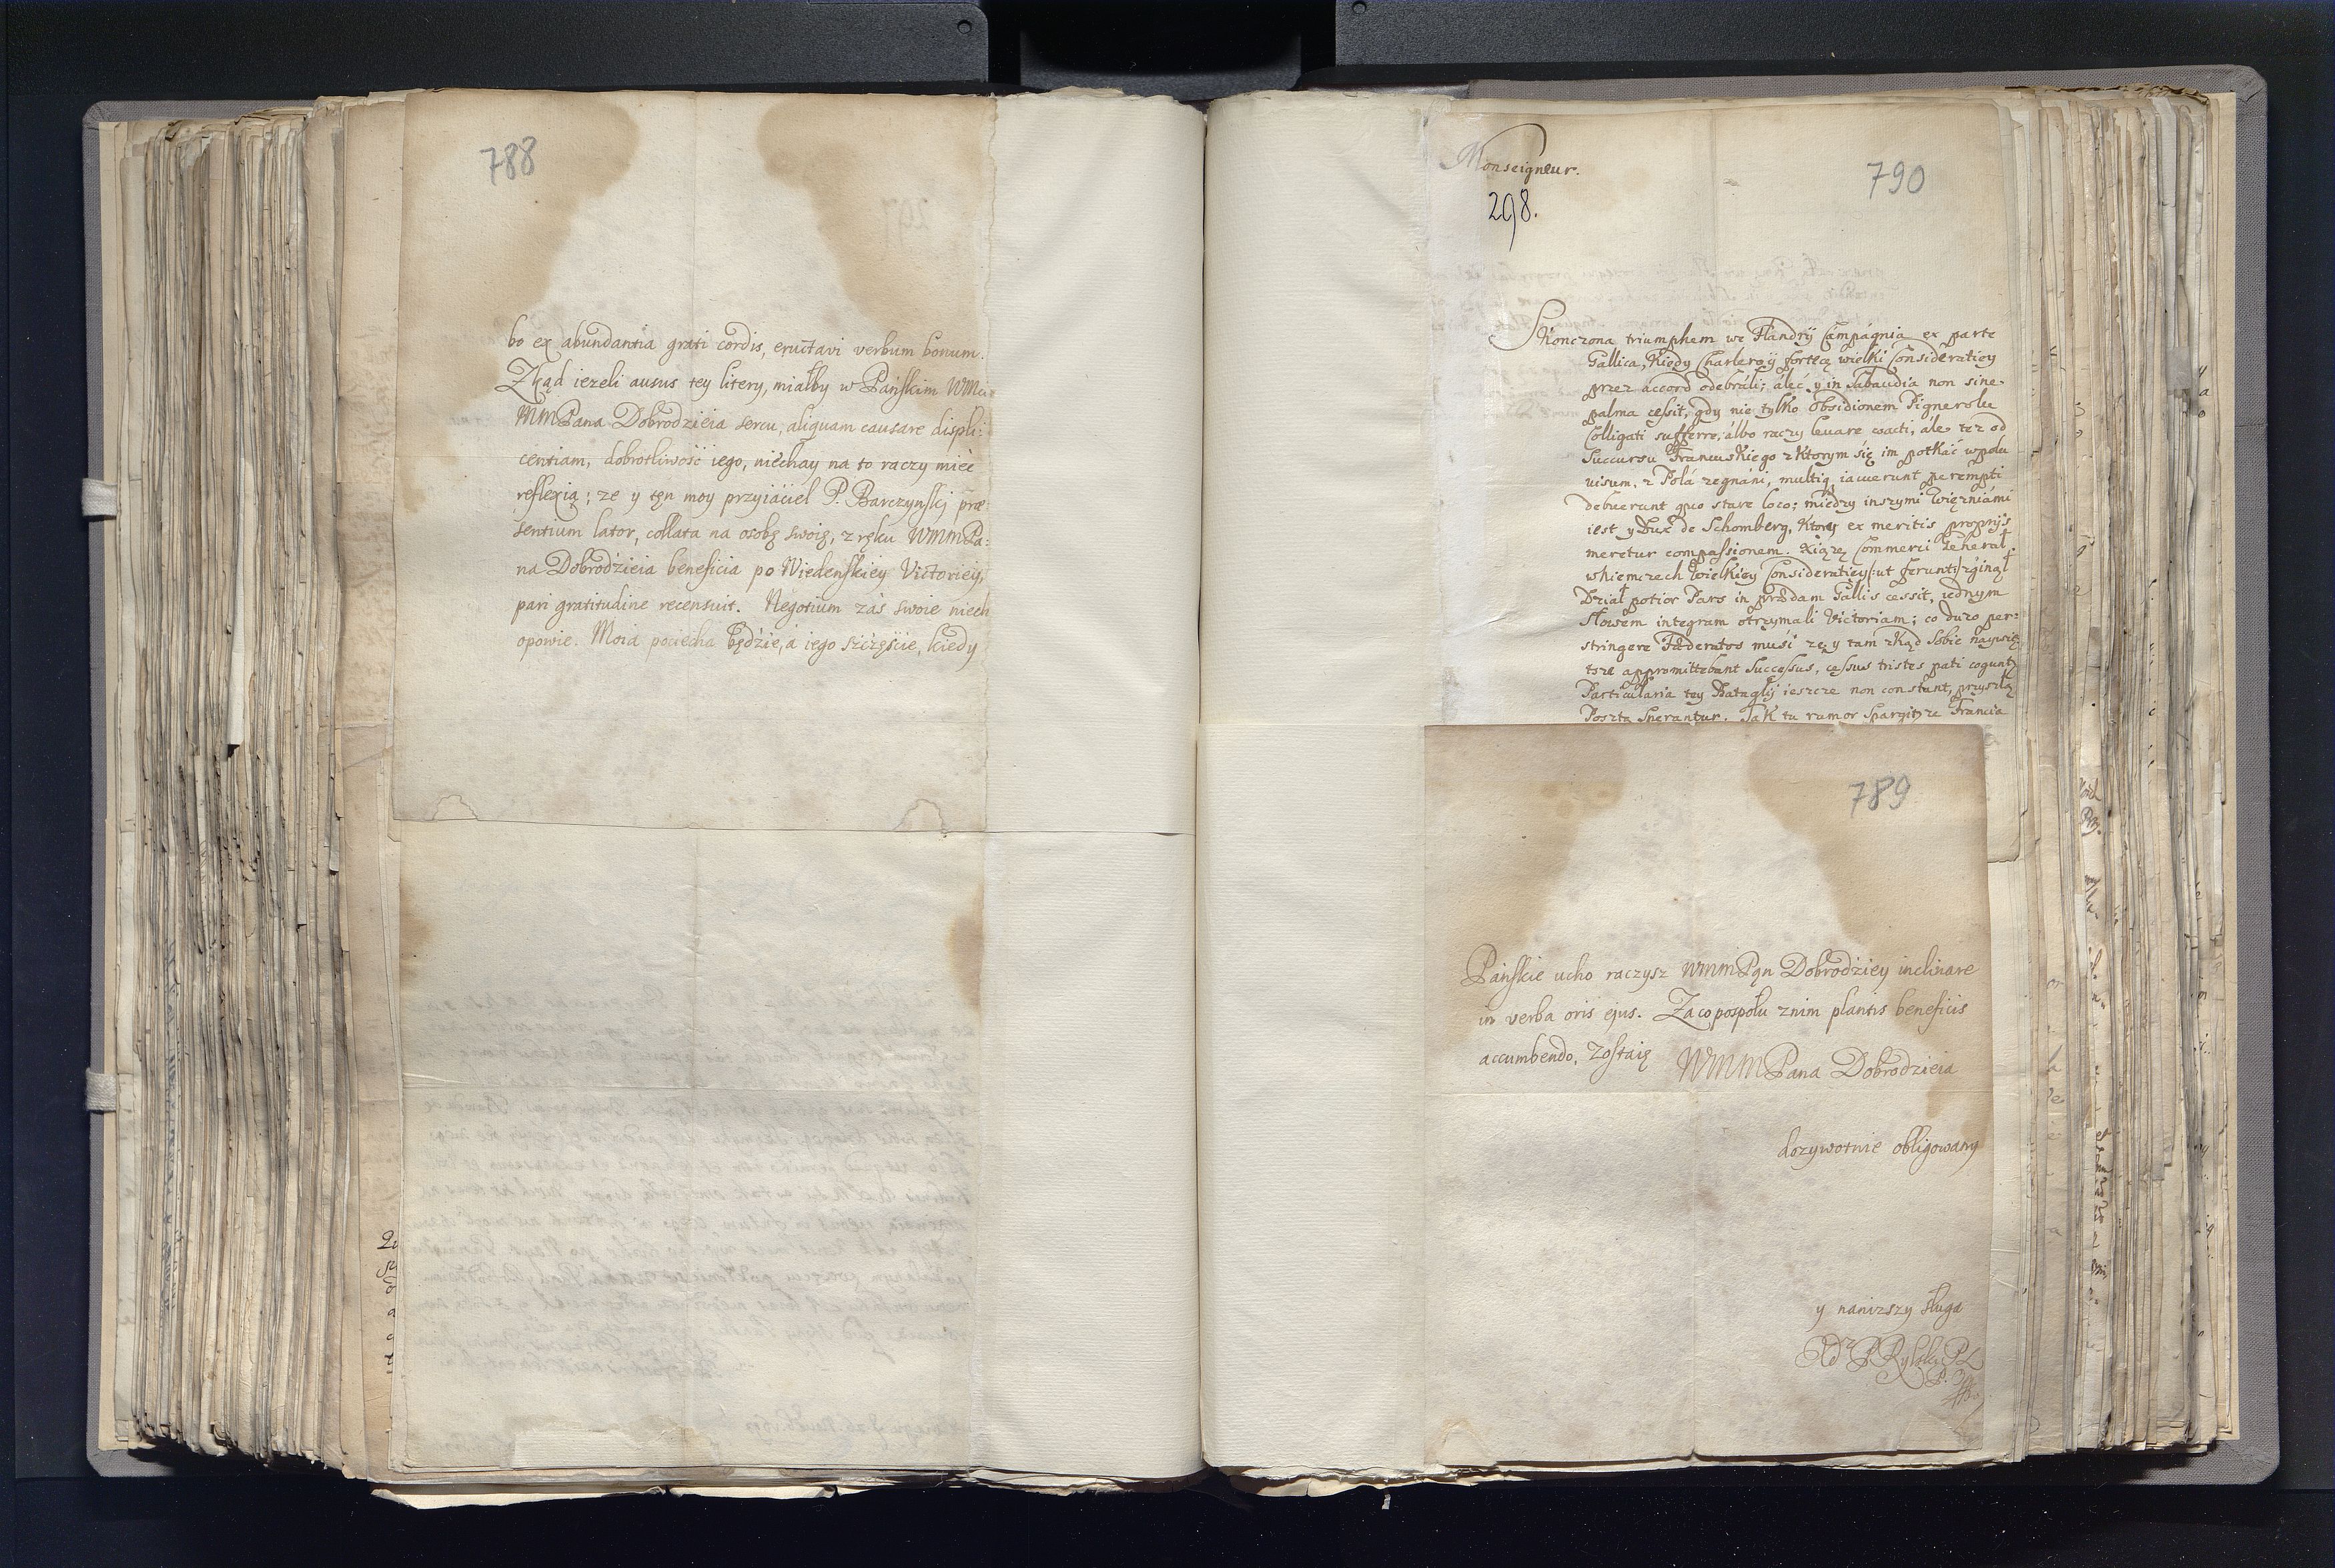 788
bo ex abundantia grati cordis, eructavi verbum bonum.
Zkąd ieżeli ausus tey litery, miałby w Pańskim WMci
MMPana Dobrodzieia sercu, aliquam causare displi:
centiam, dobrotliwość iego, niechay na to raczy mieć
reflexią; ze y tęn moy przyiaciel P. Barczynskj præ
sentium lator, collata na osobę swoię, z ręku WMMPa:
na Dobrodzieia beneficia po Wiedenskiey Victoriey,
pari gratitudine recensuit. Negotium zaś swoie niech
opowie. Moia pociecha będzie, a iego szczęście, kiedy
Monseigneur.
790
298.
Skonczona triumphem we Flandrÿ Campágnia ex parte
Gallica, Kiedy Charleroÿ fortecą wielki Consideratiey
przez áccord odebráli; áleć y in Sabaudia non sine
palma cessit, gdy nie tylko Obsidionem Pignerolu
Colligati sufferre, álbo raczy levare coacti, ale tez od
Succursu Francuskiego z Ktorym się im potkáć w polu
visum, z Polá zegnáni, multiq iacuerunt perempti
debuerant quo stare loco; miedzy inszymi Więzniámi
iest y Dux de Schomberg, Ktory ex meritis proprÿs
meretur compassionem. Xiązę Commerci Generał
w Niemczech wielkiey Consideratiey (:ut ferunt:) zginął
Dział potior Pars in prædam Gallis cessit, iednym
Słowem integram otrzymali Victoriam; co duzo per:
stringere Fæderatos musi ze y tam zkąd Sobie naywię:
tsze appromittebant Successus, cessus tristes pati coguntur
Particularia tey Batagliÿ ieszcze non constant, przyszłą
Posztą Sperantur. Tak tu rumor Spargitur ze Francia
789
Pańskie ucho raczysz WMMPan Dobrodziey inclinare
in verba oris ejus. Zaco pospołu znim plantis beneficis
accumbendo, Zostaię WMMPana Dobrodzieia
dozywotnie obligowany
y nanizszy sługa